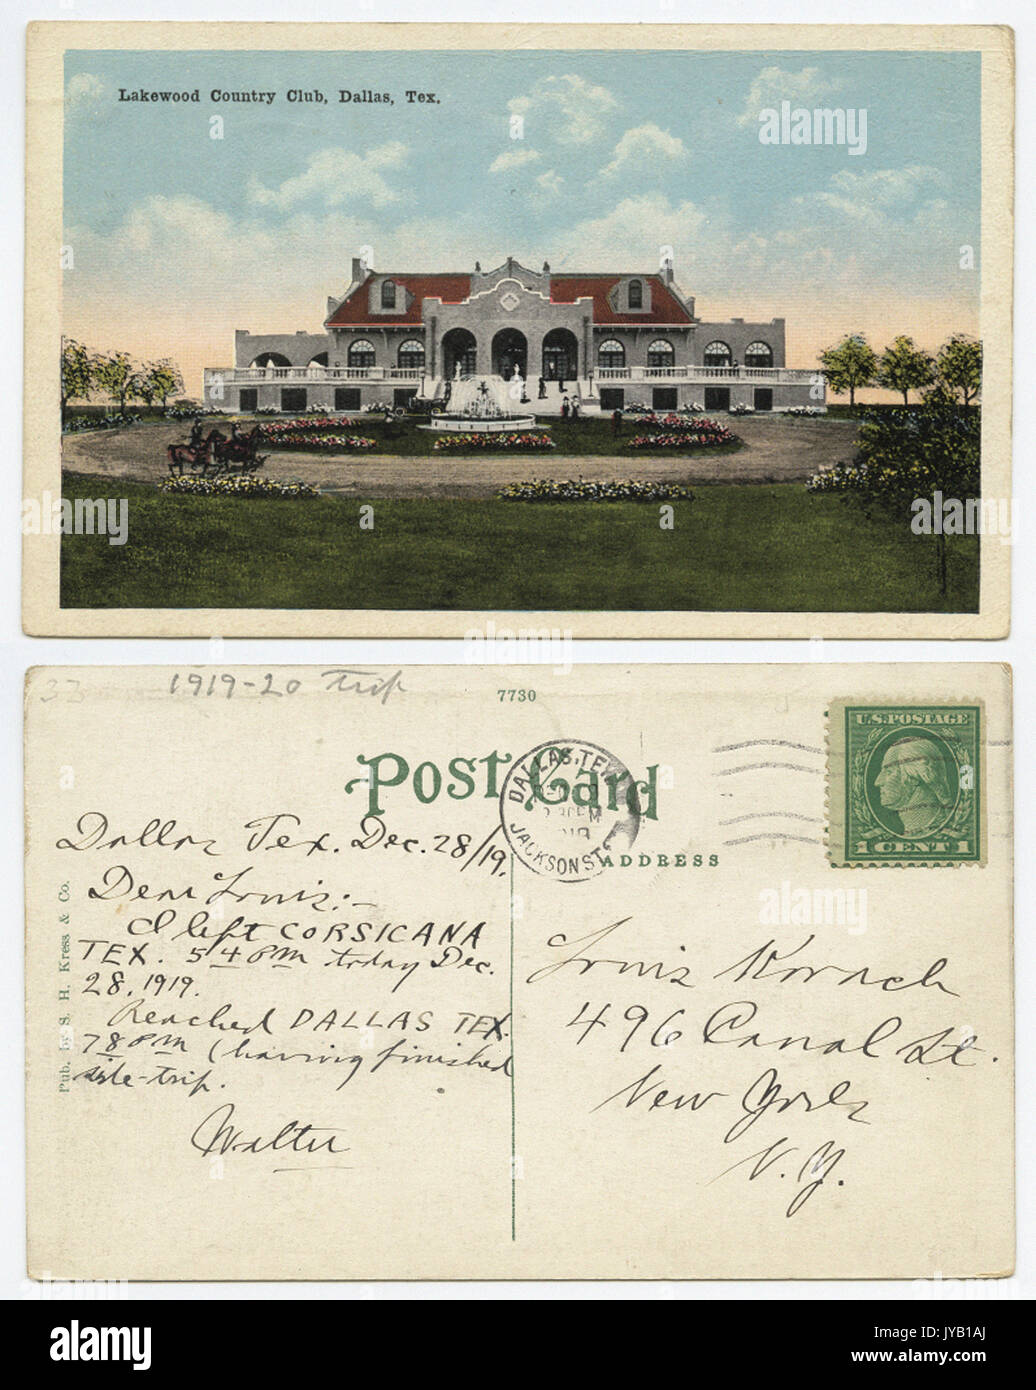 Lakewood Country Club, Dallas, Tex.
alamy
alamy
alamy
a
a
a
a
a
33 1919-20 trip
7730
POST CARD
DALLAS, TEX.
JACKSON ST.
U.S. POSTAGE
1 CENT 1
ADDRESS
Dallas Tex. Dec. 28/19.
Dear Louis:-
I left CORSICANA
TEX. 5 4 8 PM today Dec.
28, 1919.
Reached DALLAS TEX.
7 8 PM (having finished
side-trip.
Walter
Pub. by S. H. Kress & Co.
Louis Kornech
496 Canal St.
New York
N.Y.
alamy
Image ID: JYB1AJ
www.alamy.com